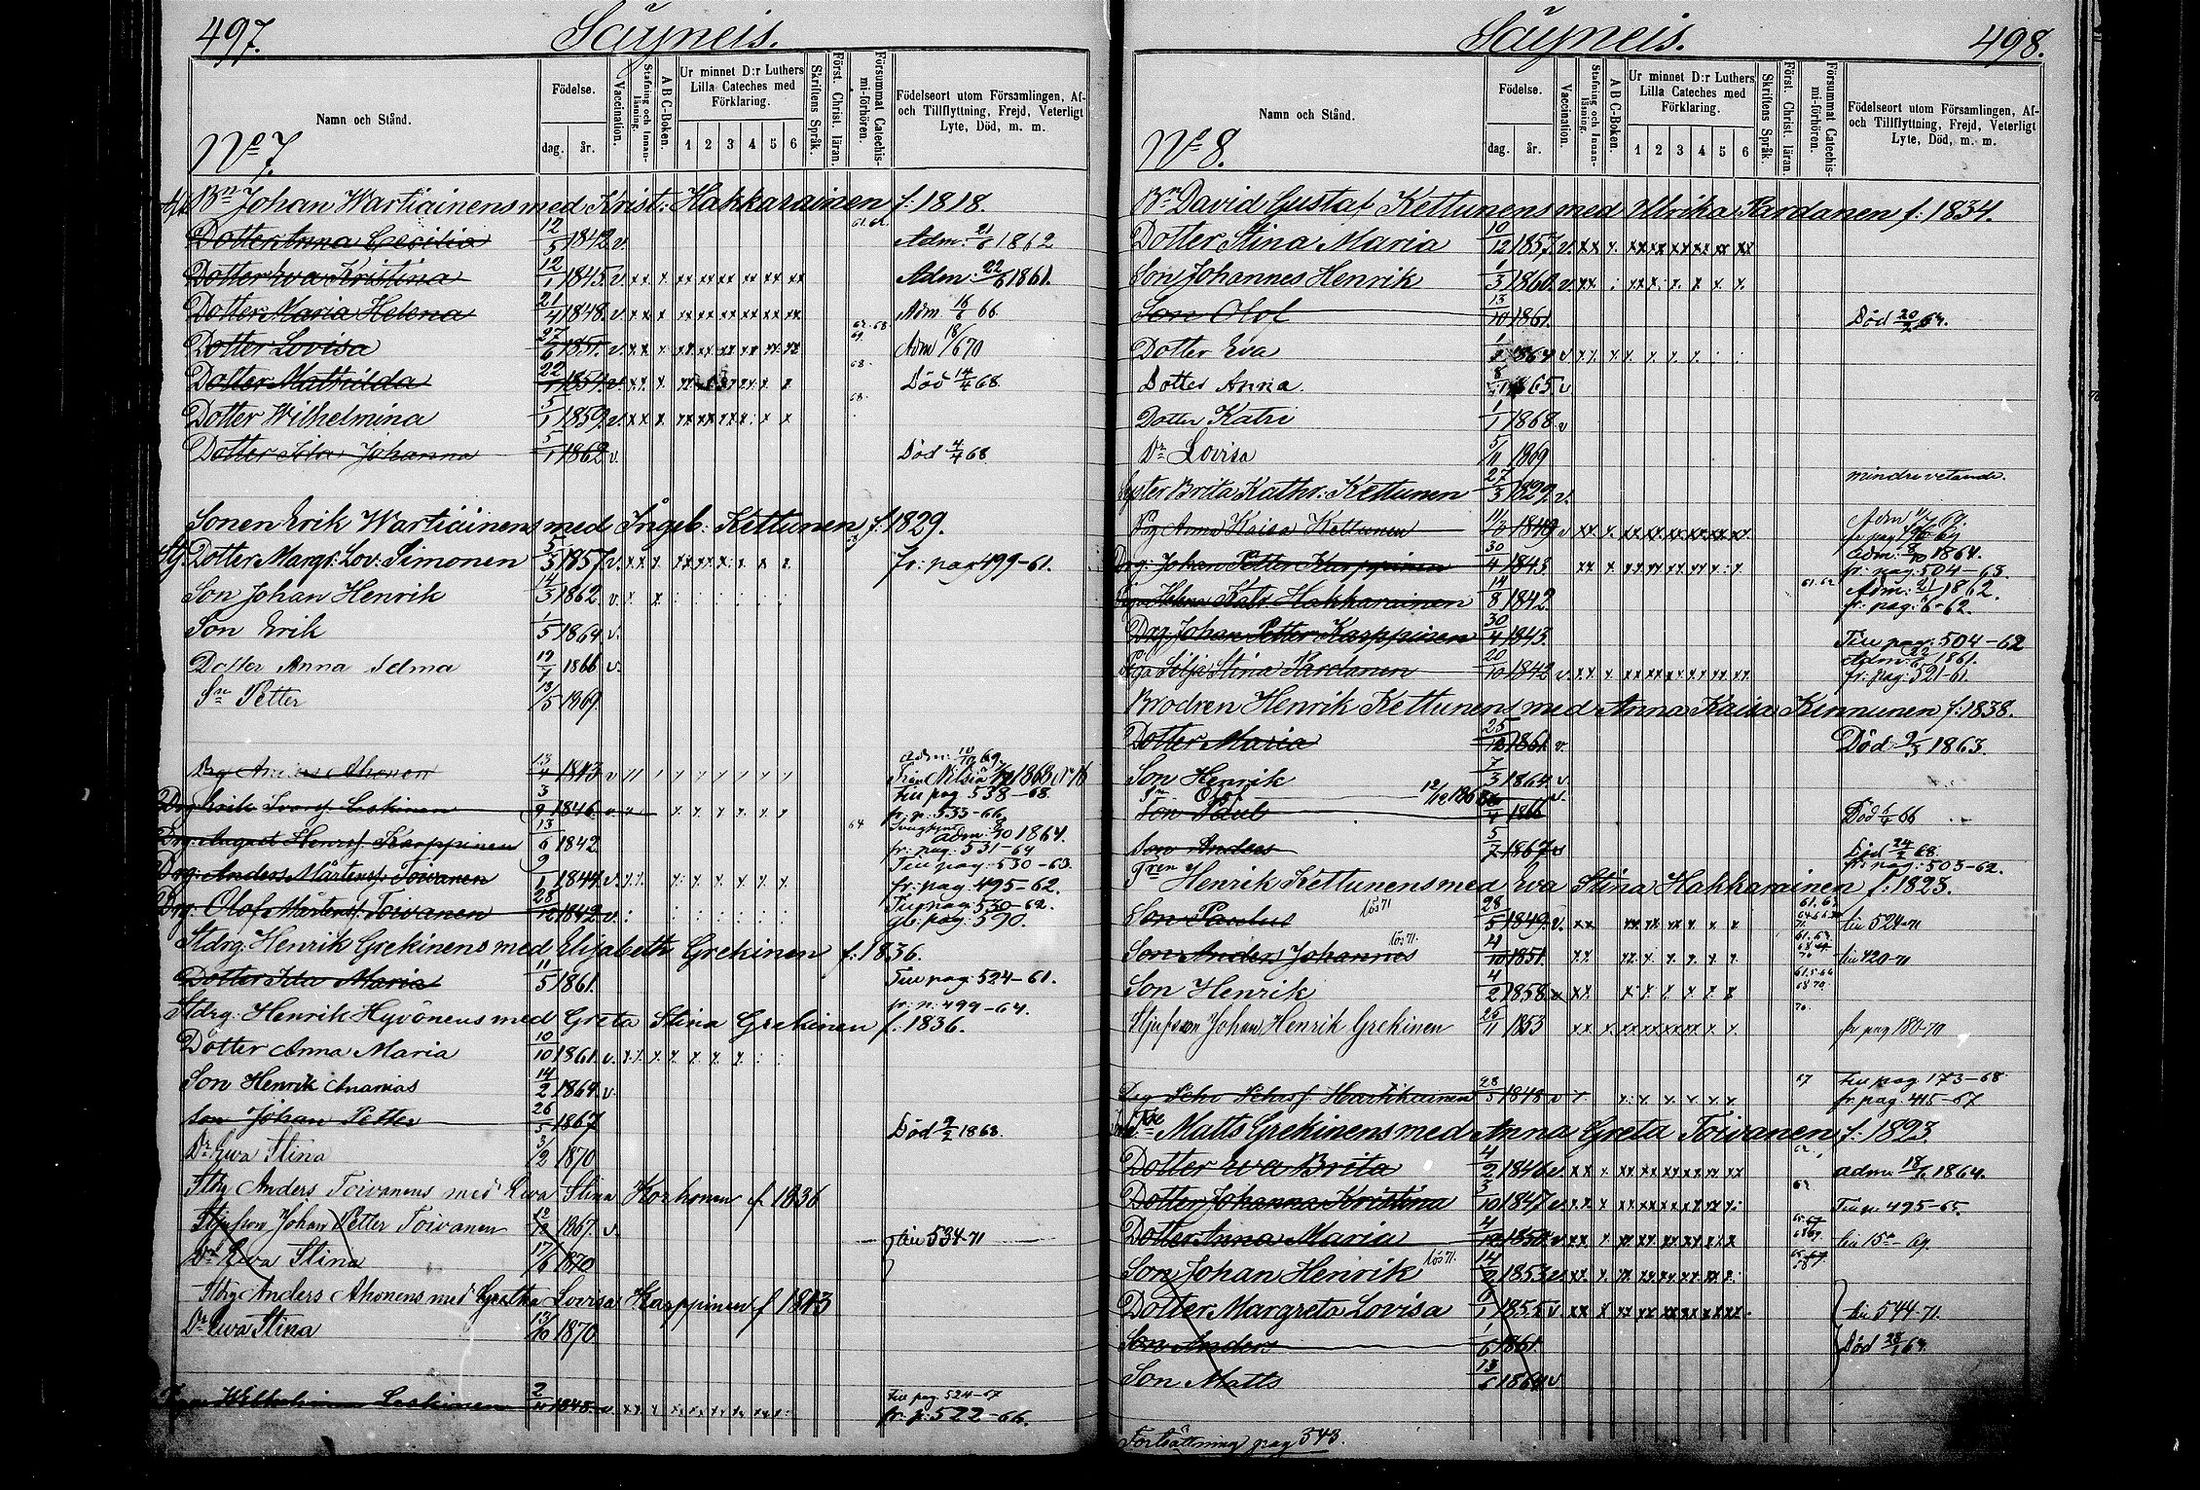 497.
Säyneis.
Namn och Stånd.
Födelse.
dag.
år.
Vaccination.
Stafning och Innanläsning.
A B C-Boken.
Ur minnet D:r Luthers Lilla Cateches med Förklaring.
1 2 3 4 5 6
Skriftens Språk.
Först. Christ. läran.
Försummat Catechismi-förhören.
Födelseort utom Församlingen, Af- och Tillflyttning, Frejd, Veterligt Lyte, Död, m. m.
No 7.
Bn Johan Wartiainens med Krist: Hakkarainen f: 1818.
Dotter Anna Cecilia 12/5 1842 v. 61.62. Adm: 21/6 1862
Dotter Eva Kristina 12/1 1845 v. Adm: 22/6 1861.
Dotter Maria Helena 21/4 1848 v. Adm 16/6 66
Dotter Lovisa 27/6 1851. v. Adm 18/6 70
Dotter Mathilda 22 1854 v. 68. Död 14/4 68.
Dotter Wilhelmina 5/1 1859 v. 68.
Dotter Johanna 5/1 1862 v. Död 4/4 68.
Sonen Erik Wartiainens med Ingeb: Kettunen f: 1829.
Dotter Margr: Lov: Simonen 5/3 1857 v. fr: pag 499-61.
Son Johan Henrik 14/3 1862 v.
Son Erik 1/5 1864 v.
Dotter Anna Selma 19 1866 v.
Sn Petter 13/5 1869
Drg Anders Ahonen 13/4 1843 v Adm: 10/10 69
Från Nilsiä 1868 No 76
Till pag 538-68.
Leskinen 3/9 1846 v. fr. p: 533-66
Drg: August Henrsf Karppinen 13/6 1842 64 adm: 8/10 1864.
fr: pag: 531-64
Till pag: 530-63.
Drg: Anders Mårtensf Toivanen 9/1 1844 v. fr: pag: 495-62.
Till pag: 530-62.
Drg: Olof Mårtensf Toivanen 28/12 1842 v. gl: pag: 590.
Stdrg: Henrik Grekinens med Elisabeth Grekinen f: 1836.
Dotter Ida Maria 11/5 1861. Till pag: 524-61.
fr: p: 499-64.
Stdrg: Henrik Hyvönens med Greta Stina Grekinen f: 1836.
Dotter Anna Maria 10/10 1861 v.
Son Henrik Ananias 14/2 1864 v.
Son Johan Petter 26/5 1867 Död 9/2 1868.
Dr Ewa Stina 3/2 1870
Stdrg Anders Toivanens med Ewa Stina Korhonen f 1836
Stjufson Johan Petter Toivanen 12/12 1867. v. till 534-71
Dr Ewa Stina 17/6 1870
Stdrg Anders Ahonens med Gretha Lovisa Karppinen f 1843
Dr Ewa Stina 13/10 1870
Wilhelmina Leskinen 1848 v. Till pag. 524-67
fr. p: 522-66.
498.
Säyneis.
Namn och Stånd.
Födelse.
dag.
år.
Vaccination.
Stafning och Innanläsning.
A B C-Boken.
Ur minnet D:r Luthers Lilla Cateches med Förklaring.
1 2 3 4 5 6
Skriftens Språk.
Först. Christ. läran.
Försummat Catechismi-förhören.
Födelseort utom Församlingen, Af- och Tillflyttning, Frejd, Veterligt Lyte, Död, m. m.
No 8.
Bn David Gustaf Kettunens med Ulrika Pardanen f: 1834.
Dotter Stina Maria 10/12 1857 v.
Son Johannes Henrik 1/3 1860 v.
Son Olof 13/10 1861. Död 20/2 64.
Dotter Eva 1864 v
Dotter Anna 8 1865 v
Dotter Katri 1/1 1868 v
Dr Lovisa 5/11 1869
mindre vetande.
Syster Brita Kathr: Kettunen 27/3 1829 v.
Pig Anna Kaisa Kettunen 1849 v
Drg: Johan Petter Karppinen 30/4 1843 adm: 8/10 1864.
fr: pag: 504-63
Helena Katr Hakkarainen 14/8 1842 61.62 Adm: 21/6 1862.
fr: pag: 6-62.
Drg Johan Petter Karppinen 30/4 1843. Till pag: 504-62
Piga Silja Stina Pardanen 20/10 1842 v Adm: 22/6 1861.
fr: pag: 521-61
Brodren Henrik Kettunens med Anna Kaisa Kinnunen f: 1838.
Dotter Maria 25/12 1861 v Död 9/3 1863.
Son Henrik 7/3 1864 v
Sn Olof 12/12 186
Son Paul 1866 Död 66
Son Anders 5/7 1867 v Död 24/2 68.
fr: pag: 505-62.
Henrik Kettunens med Eva Stina Hakkarainen f: 1823.
Son Paulus lös 71 28/5 1849 v. till 524-71
Son Anders Johannes lös 71. 4/10 1851. till 420-71
Son Henrik 4/2 1858
Stjufson Johan Henrik Grekinen 26/11 1853 70. fr pag 180-70
Till pag 173-68
1848 v 67 fr. pag 415-67
Matts Grekinens med Anna Greta Toivanen f: 1823.
Dotter Eva Brita 4/2 1846 v. adm 18/6 1864.
Dotter Johanna Kristina 3/10 1847 v. Till p: 495-65.
Dotter Anna Maria 4/12 1850 v. till 15-69.
Son Johan Henrik lös 71. 14/2 1853 v.
Dotter Margreta Lovisa 1855 v till 544-71.
Son Anders 1/6 1861. Död
Son Matts 13/6 1864 v
Fortsättning pag 343.